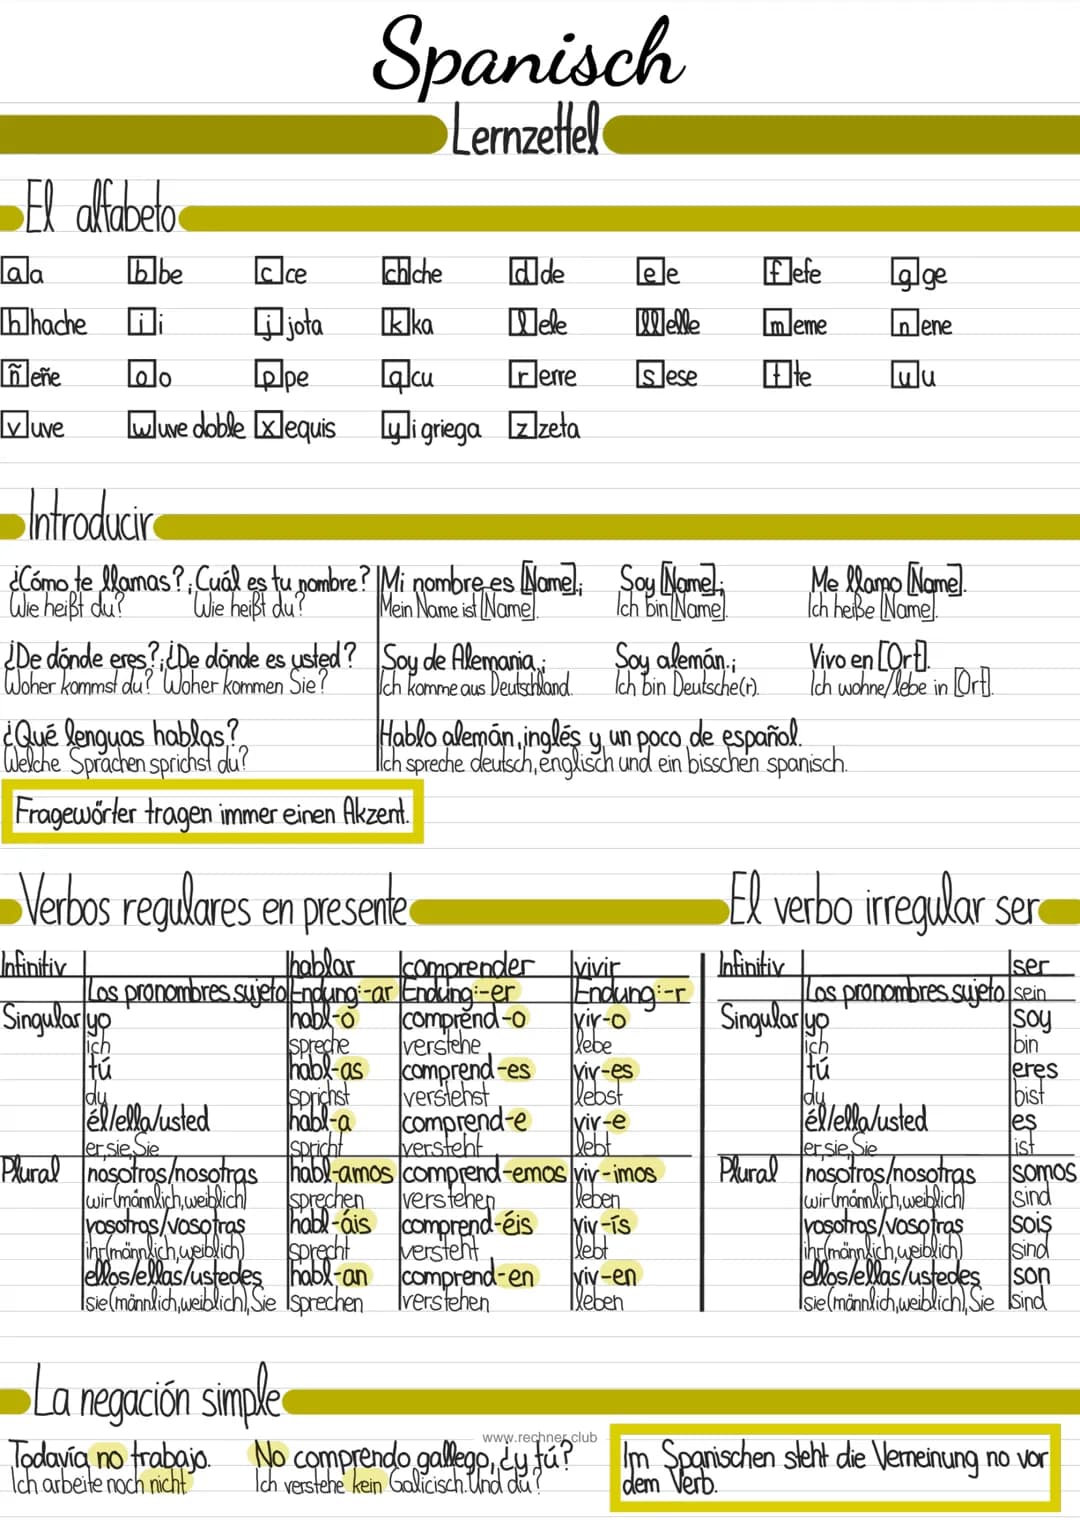 Spanisch
Lernzettel
El alfabeto
a a b be c ce ch che d de e e f efe g ge
h hache i i j jota k ka l ele ll elle m eme n ene
ñ eñe o o p pe q cu r erre s ese t te u u
v uve w uve doble x equis y i griega z zeta
Introducir
¿Cómo te llamas?; Cuál es tu nombre? Mi nombre es [Name]; Soy [Name]; Me llamo [Name].
Wie heißt du? Wie heißt du? Mein Name ist [Name]. Ich bin [Name]. Ich heiße [Name].
¿De dónde eres?; ¿De dónde es usted? Soy de Alemania.; Soy alemán.; Vivo en [Ort].
Woher kommst du? Woher kommen Sie? Ich komme aus Deutschland. Ich bin Deutsche(r). Ich wohne/lebe in [Ort].
¿Qué lenguas hablas? Hablo alemán, inglés y un poco de español.
Welche Sprachen sprichst du? Ich spreche deutsch, englisch und ein bisschen spanisch.
Fragewörter tragen immer einen Akzent.
Verbos regulares en presente El verbo irregular ser
Infinitiv hablar comprender vivir Infinitiv ser
Los pronombres sujeto Endung:-ar Endung:-er Endung:-r Los pronombres sujeto sein
Singular yo habl-o comprend-o viv-o Singular yo soy
ich spreche verstehe lebe ich bin
tú habl-as comprend-es viv-es tú eres
du sprichst verstehst lebst du bist
él/ella/usted habl-a comprend-e viv-e él/ella/usted es
er,sie,Sie spricht versteht lebt er,sie,Sie ist
Plural nosotros/nosotras habl-amos comprend-emos viv-imos Plural nosotros/nosotras somos
wir(männlich,weiblich) sprechen verstehen leben wir(männlich,weiblich) sind
vosotros/vosotras habl-áis comprend-éis viv-ís vosotros/vosotras sois
ihr(männlich,weiblich) sprecht versteht lebt ihr(männlich,weiblich) sind
ellos/ellas/ustedes habl-an comprend-en viv-en ellos/ellas/ustedes son
sie(männlich,weiblich),Sie sprechen verstehen leben sie(männlich,weiblich),Sie sind
La negación simple
www.rechner.club
Todavía no trabajo. No comprendo gallego, ¿y tú? Im Spanischen steht die Verneinung no vor
Ich arbeite noch nicht Ich verstehe kein Galicisch. Und du? dem Verb.